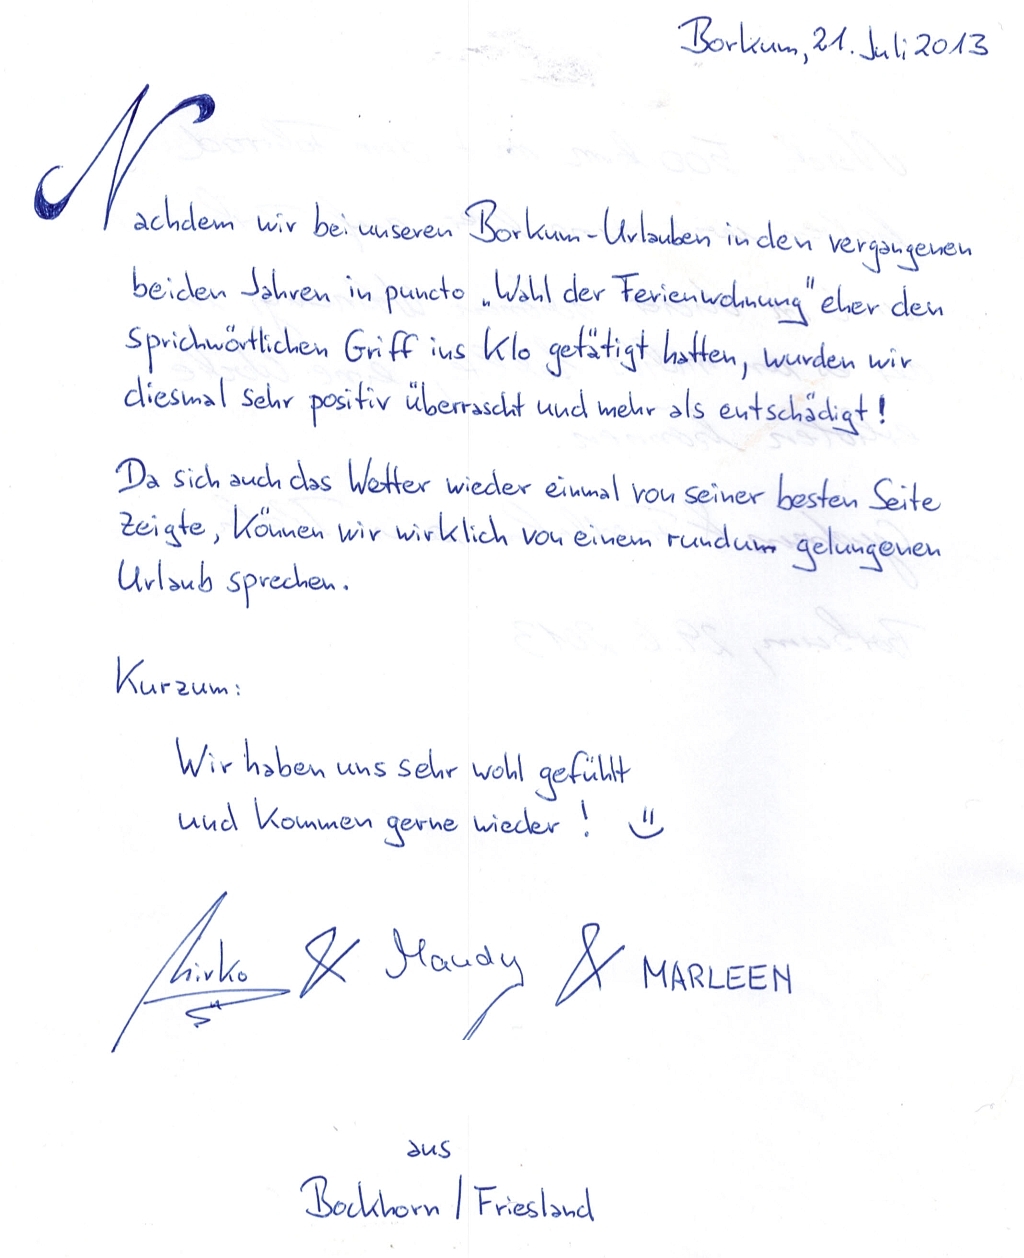 Borkum, 21. Juli 2013
Nachdem wir bei unseren Borkum-Urlauben in den vergangenen
beiden Jahren in puncto „Wahl der Ferienwohnung" eher den
sprichwörtlichen Griff ins Klo getätigt hatten, wurden wir
diesmal sehr positiv überrascht und mehr als entschädigt!
Da sich auch das Wetter wieder einmal von seiner besten Seite
zeigte, können wir wirklich von einem rundum gelungenen
Urlaub sprechen.
Kurzum:
Wir haben uns sehr wohl gefühlt
und kommen gerne wieder!
Mirko & Mandy & MARLEEN
aus
Bockhorn / Friesland